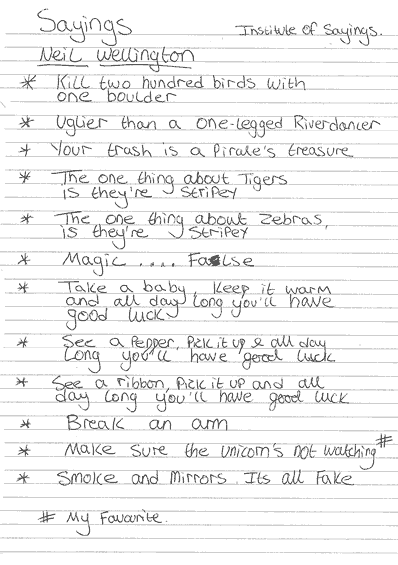 Sayings
Institute of Sayings.
Neil Wellington
* Kill two hundred birds with
one boulder
* Uglier than a one-legged Riverdancer
* Your trash is a Pirate's treasure
* The one thing about Tigers
is they're Stripey
* The one thing about Zebras,
is they're Stripey
* Magic .... False
* Take a baby, Keep it warm
and all day long you'll have
good luck
* See a Pepper, Pick it up & all day
long you'll have good luck
* See a ribbon, Pick it up and all
day long you'll have good luck
* Break an arm
* Make sure the unicorn's not watching #
* Smoke and Mirrors. Its all Fake
# My Favourite.